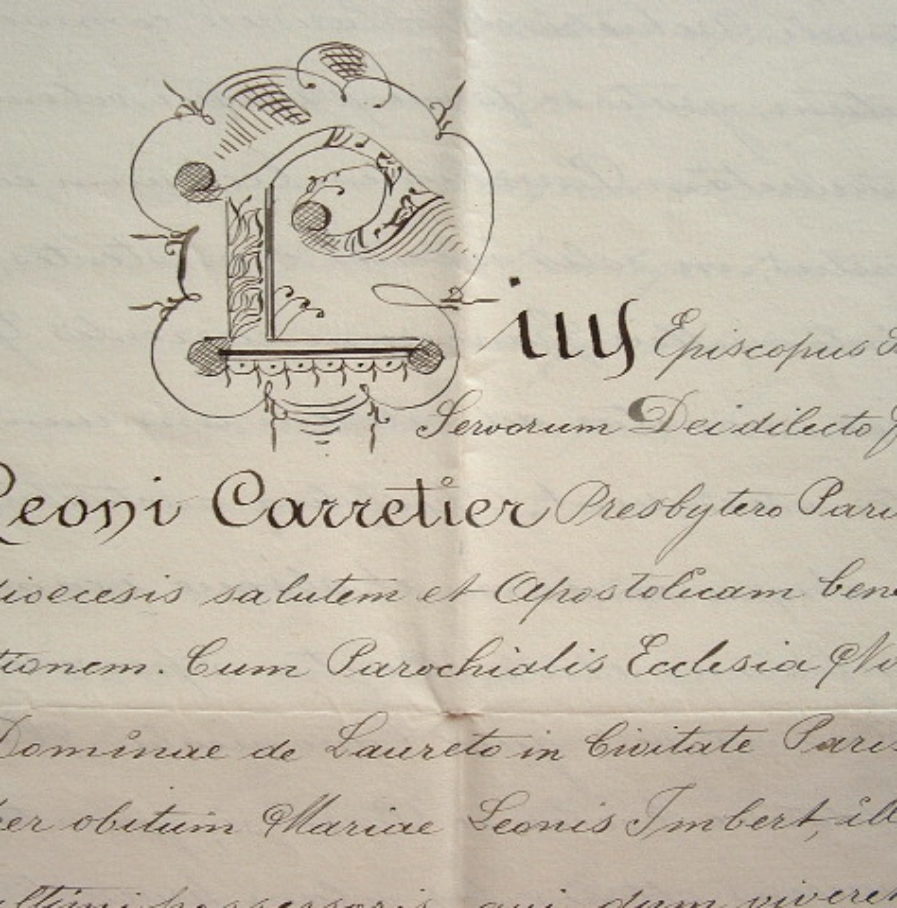 Pius Episcopus
Servorum Dei dilecto
Leoni Carretier Presbytero Pari
ioecesis salutem et Apostolicam bene
tionem. Cum Parochialis Ecclesia
Dominae de Laureto in Civitate Paris
er obitum Mariae Leonis Imbert, ill
ltimi possessoris, qui, dum viveret